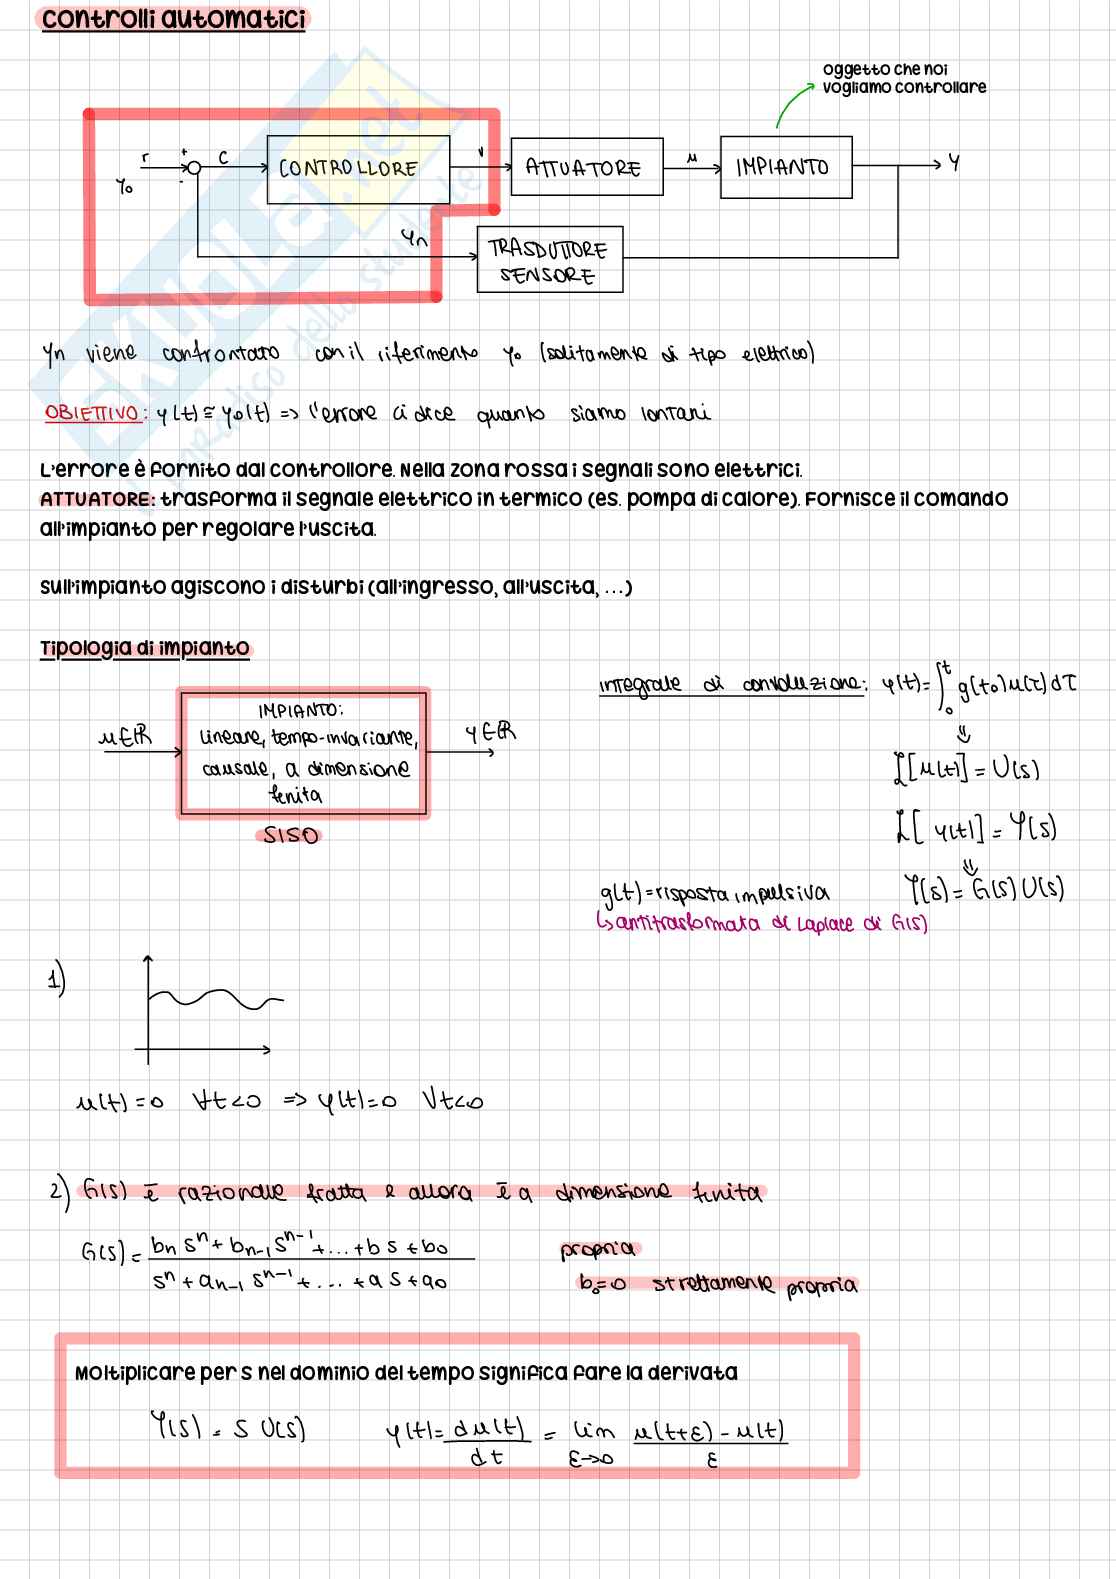 controlli automatici
oggetto che noi
vogliamo controllare
r
+
-
y₀
c
CONTROLLORE
v
ATTUATORE
u
IMPIANTO
y
yn
TRASDUTTORE
SENSORE
yn viene confrontato con il riferimento y₀ (solitamente di tipo elettrico)
OBIETTIVO: y(t) ≅ y₀(t) => l'errore ci dice quanto siamo lontani
L'errore è fornito dal controllore. Nella zona rossa i segnali sono elettrici.
ATTUATORE: trasforma il segnale elettrico in termico (es. pompa di calore). Fornisce il comando
all'impianto per regolare l'uscita.
sull'impianto agiscono i disturbi (all'ingresso, all'uscita, ...)
Tipologia di impianto
integrale di convoluzione: y(t)=∫₀ᵗ g(t₀)u(τ)dτ
u∈ℝ
IMPIANTO:
lineare, tempo-invariante,
causale, a dimensione
finita
y∈ℝ
SISO
⇓
ℒ[u(t)] = U(s)
ℒ[y(t)] = Y(s)
⇓
g(t)=risposta impulsiva
Y(s)= G(s) U(s)
↳ antitrasformata di Laplace di G(s)
1)
u(t)=0 ∀t<0 => y(t)=0 ∀t<0
2) G(s) è razionale fratta e allora è a dimensione finita
G(s)= (bn sⁿ + bn-1 sⁿ⁻¹ + ... + b s + b₀) / (sⁿ + an-1 sⁿ⁻¹ + ... + a s + a₀)
propria
b₀=0 strettamente propria
Moltiplicare per s nel dominio del tempo significa fare la derivata
Y(s) = s U(s)
y(t)= du(t)/dt = lim ε→0 (u(t+ε) - u(t))/ε
skuola.net
paradiso dello studente